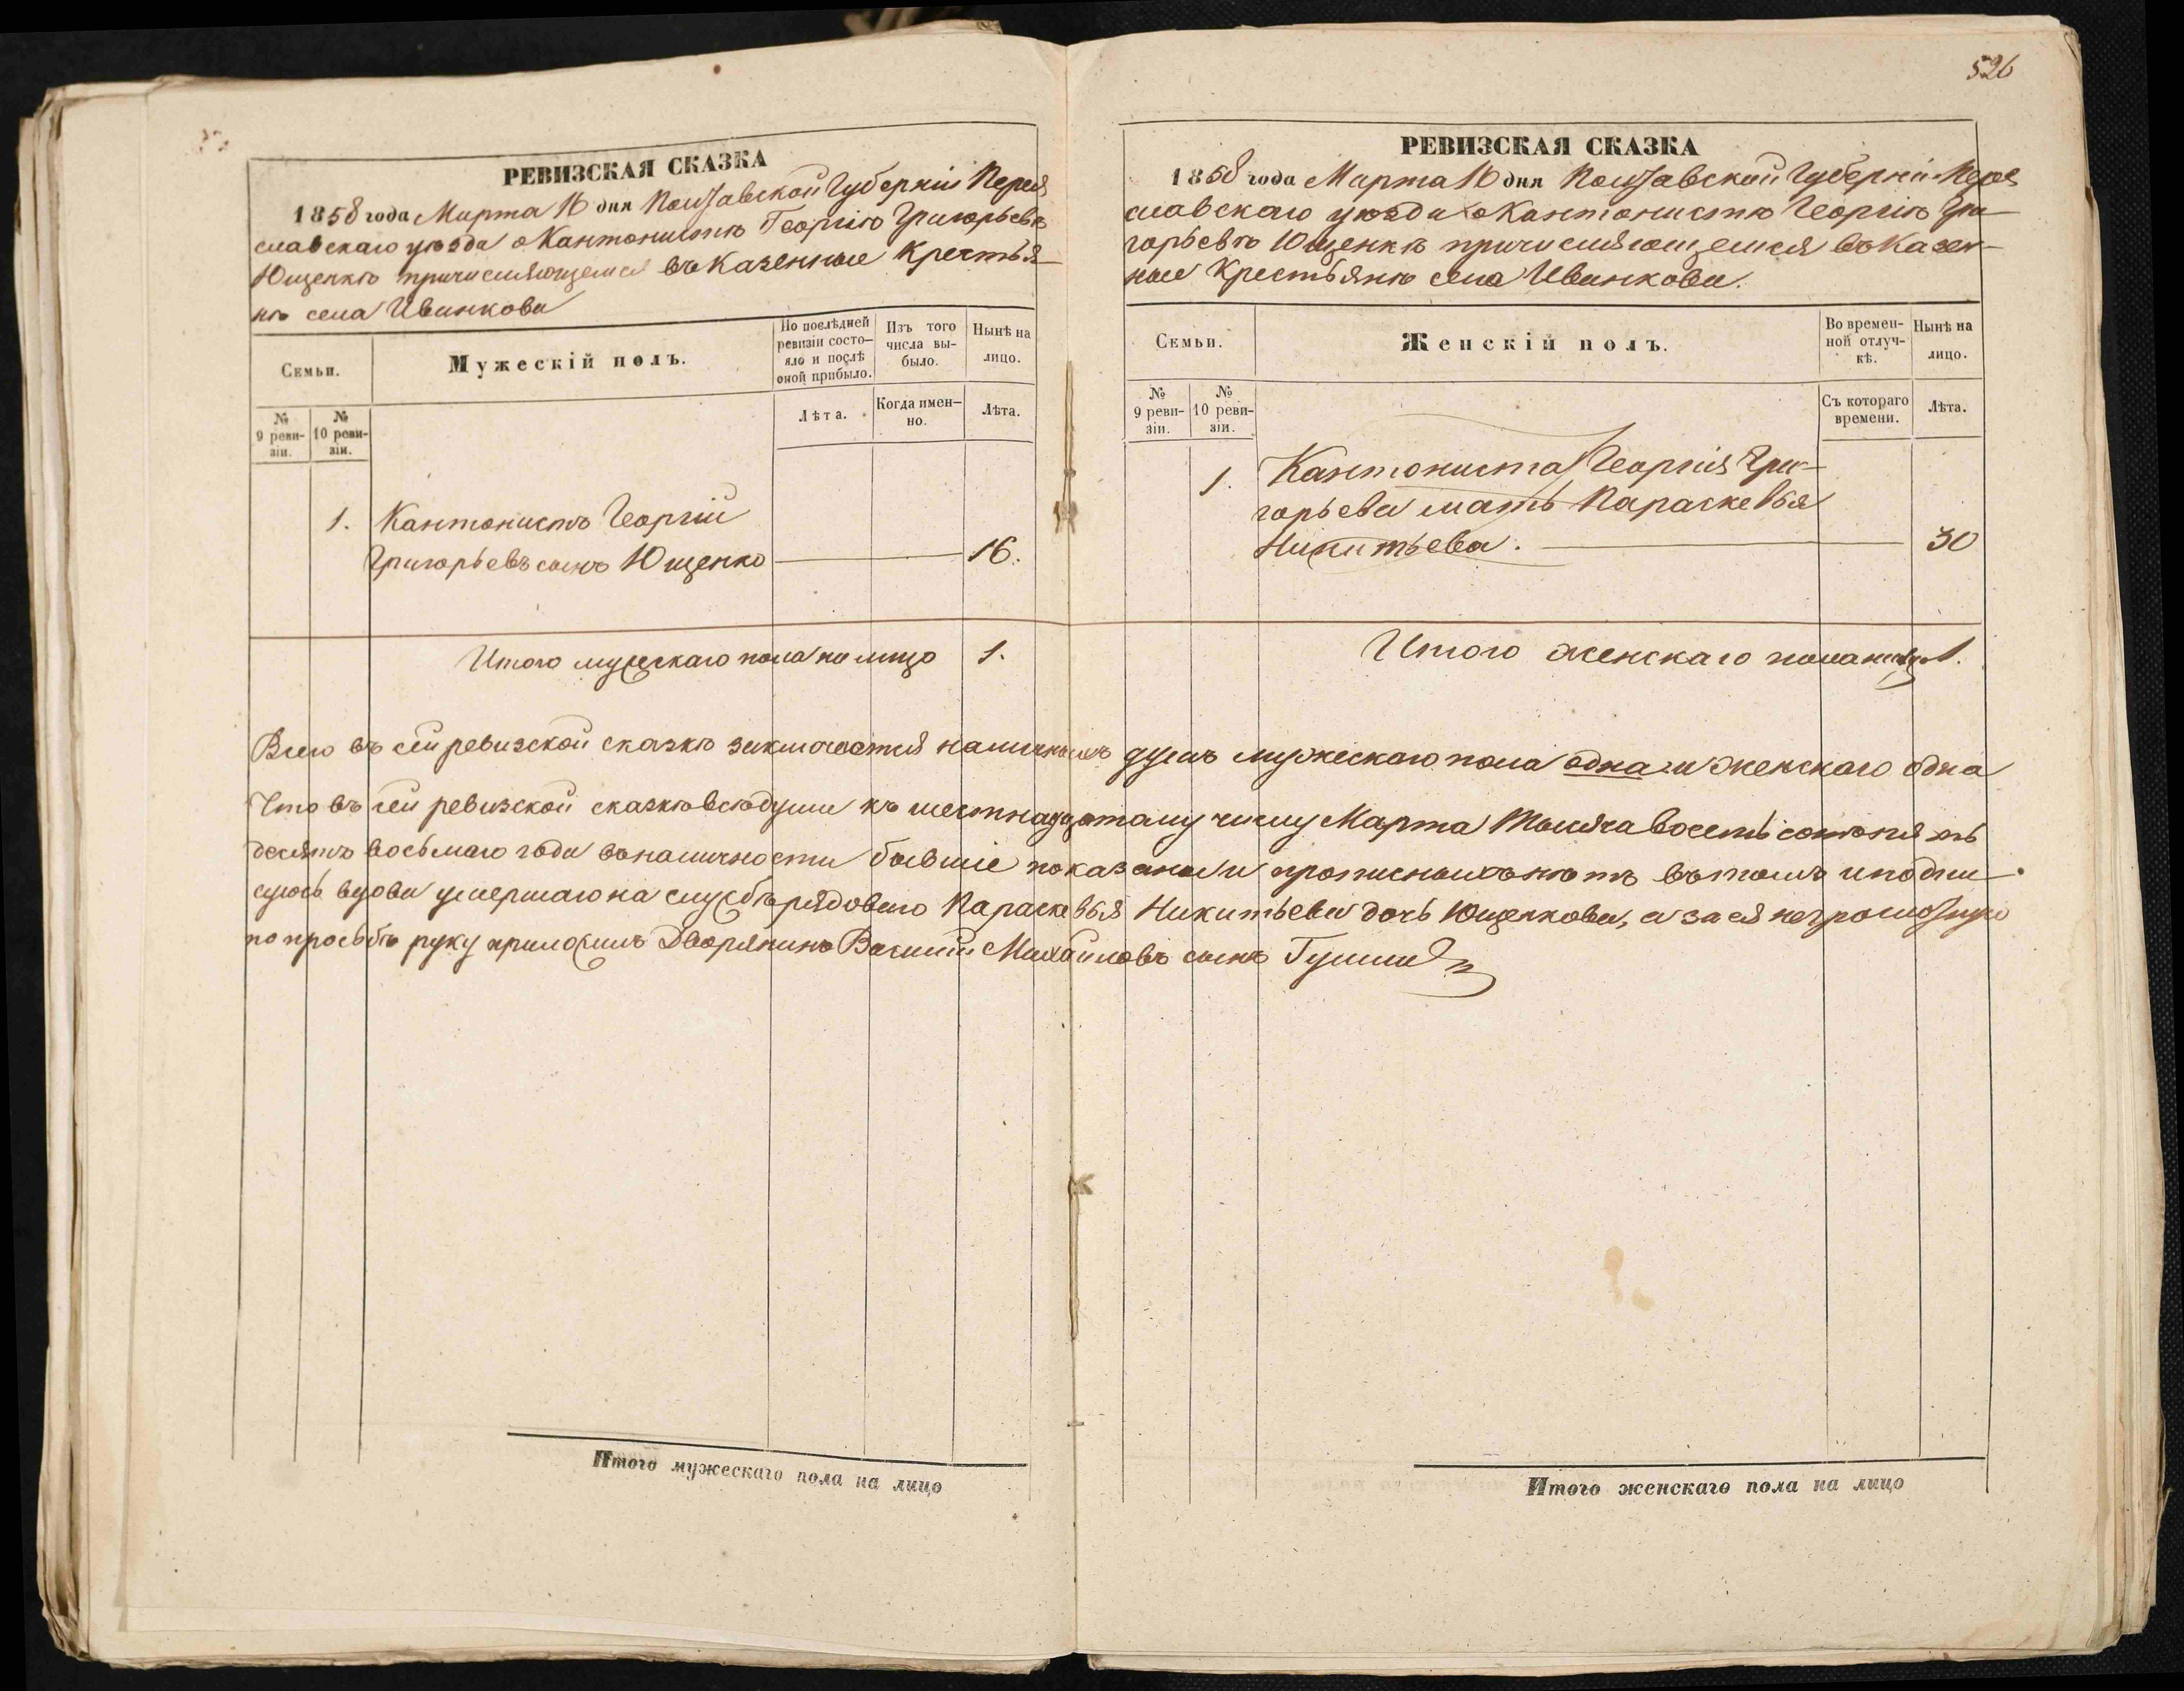 526
РЕВИЗСКАЯ СКАЗКА
1858 года Марта 16 дня Полтавской Губерніи Перея
славскаго уѣзда о Кантонистѣ Георгію Григорьевѣ
Ющенкѣ причисляющемся въ Казенные Крестья-
нѣ села Иванкова
Семьи.
Мужескій полъ.
По послѣдней ревизіи состо-яло и послѣ оной прибыло.
Изъ того числа вы-было.
Нынѣ на лицо.
№ 9 реви-зіи.
№ 10 реви-зіи.
Лѣта.
Когда имен-но.
Лѣта.
1. Кантонистъ Георгій
Григорьевъ сынъ Ющенко 16.
Итого мужескаго пола на лицо 1.
РЕВИЗСКАЯ СКАЗКА
1858 года Марта 16 дня Полтавской Губерніи Перея
славскаго уѣзда о Кантонистѣ Георгію Гри-
горьевѣ Ющенкѣ причисляющемся въ Казен-
ные Крестьянѣ села Иванкова.
Семьи.
Женскій полъ.
Во времен-ной отлуч-кѣ.
Нынѣ на лицо.
№ 9 реви-зіи.
№ 10 реви-зіи.
Съ котораго времени.
Лѣта.
1. Кантониста Георгія Гри-
горьева мать Параскевья
Никитьева. 30
Итого женскаго пола налицо 1.
Всего въ сей ревизской сказкѣ заключается наличныхъ душъ мужескаго пола одна и женскаго одна
Что въ сей ревизской сказкѣ всѣ души къ шестнадцатому числу Марта тысяча восемь сотъ пять
десятъ восьмаго года въ наличности бывшіе показаны и прописныхъ нѣтъ въ томъ и подпи
суюсь вдова умершаго на службѣ рядоваго Параскевья Никитьева дочь Ющенкова, а за ея неграмотную
по просьбѣ руку приложилъ Дворянинъ Василій Михайловъ сынъ
Итого мужескаго пола на лицо
Итого женскаго пола на лицо